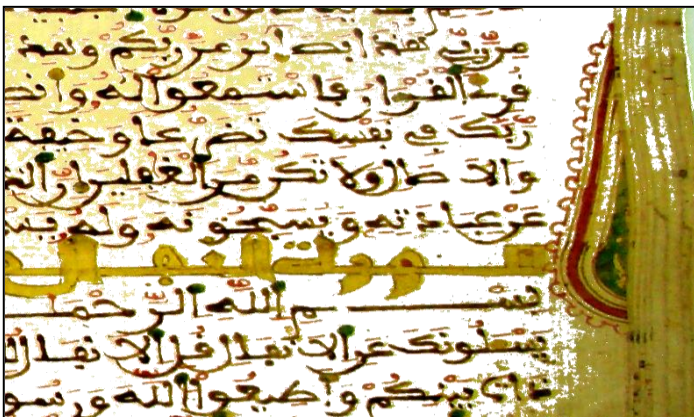 من ربي هذا بصاير من ربكم وهدى
قرئ القرءان فاستمعوا له وأنص
ربك في نفسك تضرعا وخيفة
والاصال ولا تكن من الغفلين إن الذ
عن عبادته ويسبحونه وله يس
سورة الانفال
بسم الله الرحمـ
يسلونك عن الانفال قل الانفال لل
ذات بينكم وأطيعوا الله ورسو